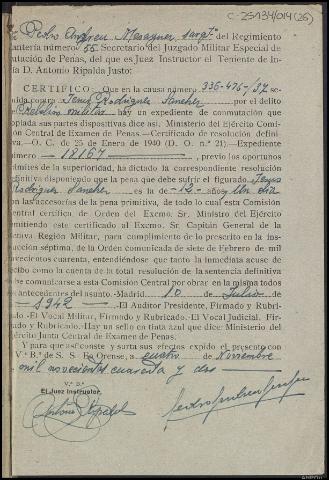 C-25134/014(26)
D. Pedro Andreu Mesaguer, sargt. del Regimiento
antería número 55 Secretario del Juzgado Militar Especial de
utación de Penas, del que es Juez Instructor el Teniente de In-
ía D. Antonio Ripalda Justo:
CERTIFICO: Que en la causa número 336-475-/37 se-
uida contra Rodríguez Sánchez por el delito
Rebelión militar hay un expediente de conmutación que
opiada sus partes dispositivas dice así. Ministerio del Ejército Comi-
ón Central de Examen de Penas.—Certificado de resolución defini-
iva.—O. C. de 25 de Enero de 1940 (D. O. n.º 21).—Expediente
úmero — 18167 —, previo los oportunos
ámites de la superioridad, ha dictado la correspondiente resolución
efinitiva disponiendo que la pena que debe sufrir el figurado
Rodríguez Sánchez es la de -12- años Un día
on las accesorias de la pena primitiva, de todo lo cual esta Comisión
entral certifica de Orden del Excmo. Sr. Ministro del Ejército
emitiendo este certificado al Excmo. Sr. Capitán General de la
ctava Región Militar, para cumplimiento de lo prescrito en la ins-
ucción séptima, de la Orden comunicada de siete de Febrero de mil
ovecientos cuarenta, entendiéndose que tanto la inmediata acuse de
ecibo como la cuenta de la total resolución de la sentencia definitiva
ebe comunicarse a esta Comisión Central por obrar en la misma todos
os antecedentes del asunto.-Madrid. 10 de Julio de
1942 — .-El Auditor Presidente, Firmado y Rubri-
ado.-El Vocal Militar, Firmado y Rubricado.-El Vocal Judicial. Fir-
ado y Rubricado.-Hay un sello en tinta azul que dice: Ministerio del
jército Junta Central de Examen de Penas.
Y para que así conste y surta sus efectos expido el presente con
V.º B.º de S. S En Orense, a cuatro de Noviembre
mil novecientos cuarenta y dos —
V.º B.º
El Juez Instructor,
Antonio Ripalda